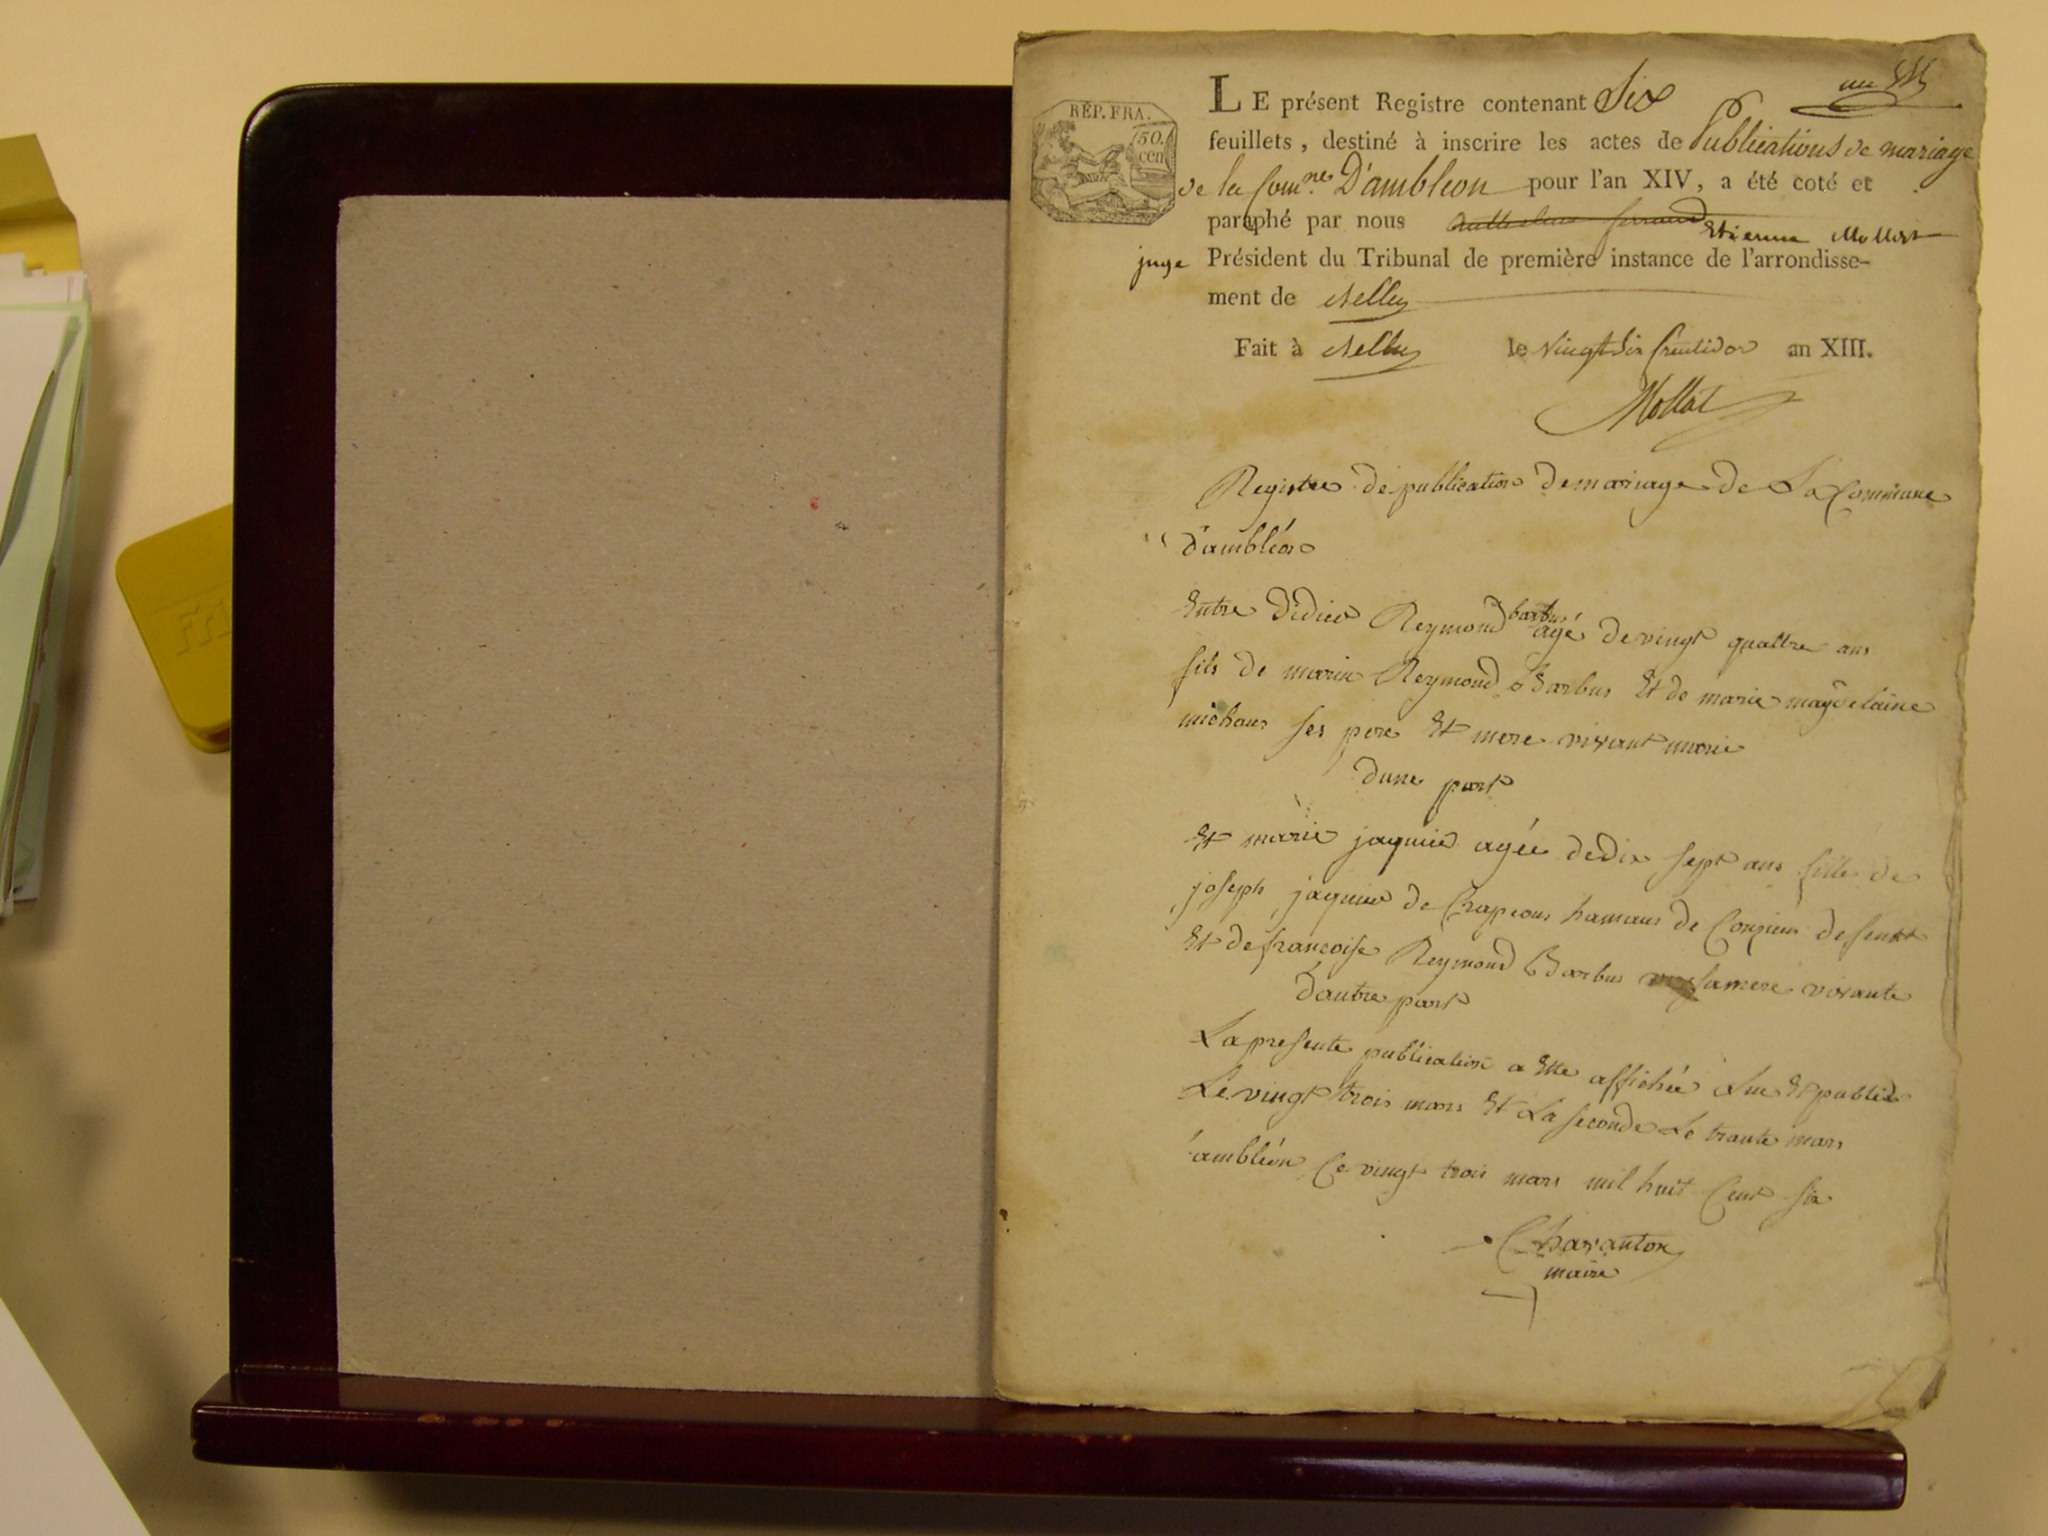 un
RÉP. FRA.
50.
cen
LE présent Registre contenant Six
feuillets, destiné à inscrire les actes de Publications de mariage
de la Com.nes D'ambléon pour l'an XIV, a été coté et
paraphé par nous Etienne Mollet
juge Président du Tribunal de première instance de l'arrondisse-
ment de Belley
Fait à Belley le vingt six fructidor an XIII.
Mollet
Registre de publication de mariage de La Commune
d'ambléon
Entre didier Reymond barbus agé de vingt quattre ans
fils de marin Reymond Barbus Et de marie magdelaine
michaux ses pere Et mere vivant marie
dune part
Et marie jaquier agée de dix sept ans fille de
joseph jaquier de Crapeous hamaux de Conzieux defeunt
Et de francoise Reymond Barbus sa mere vivante
d'autre part
La presente publication a Ette affichée Lue Et publiée
Le vingt trois mars Et La seconde Le trante mars
ambléon Ce vingt trois mars mil huit Cent six
Charanton
maire